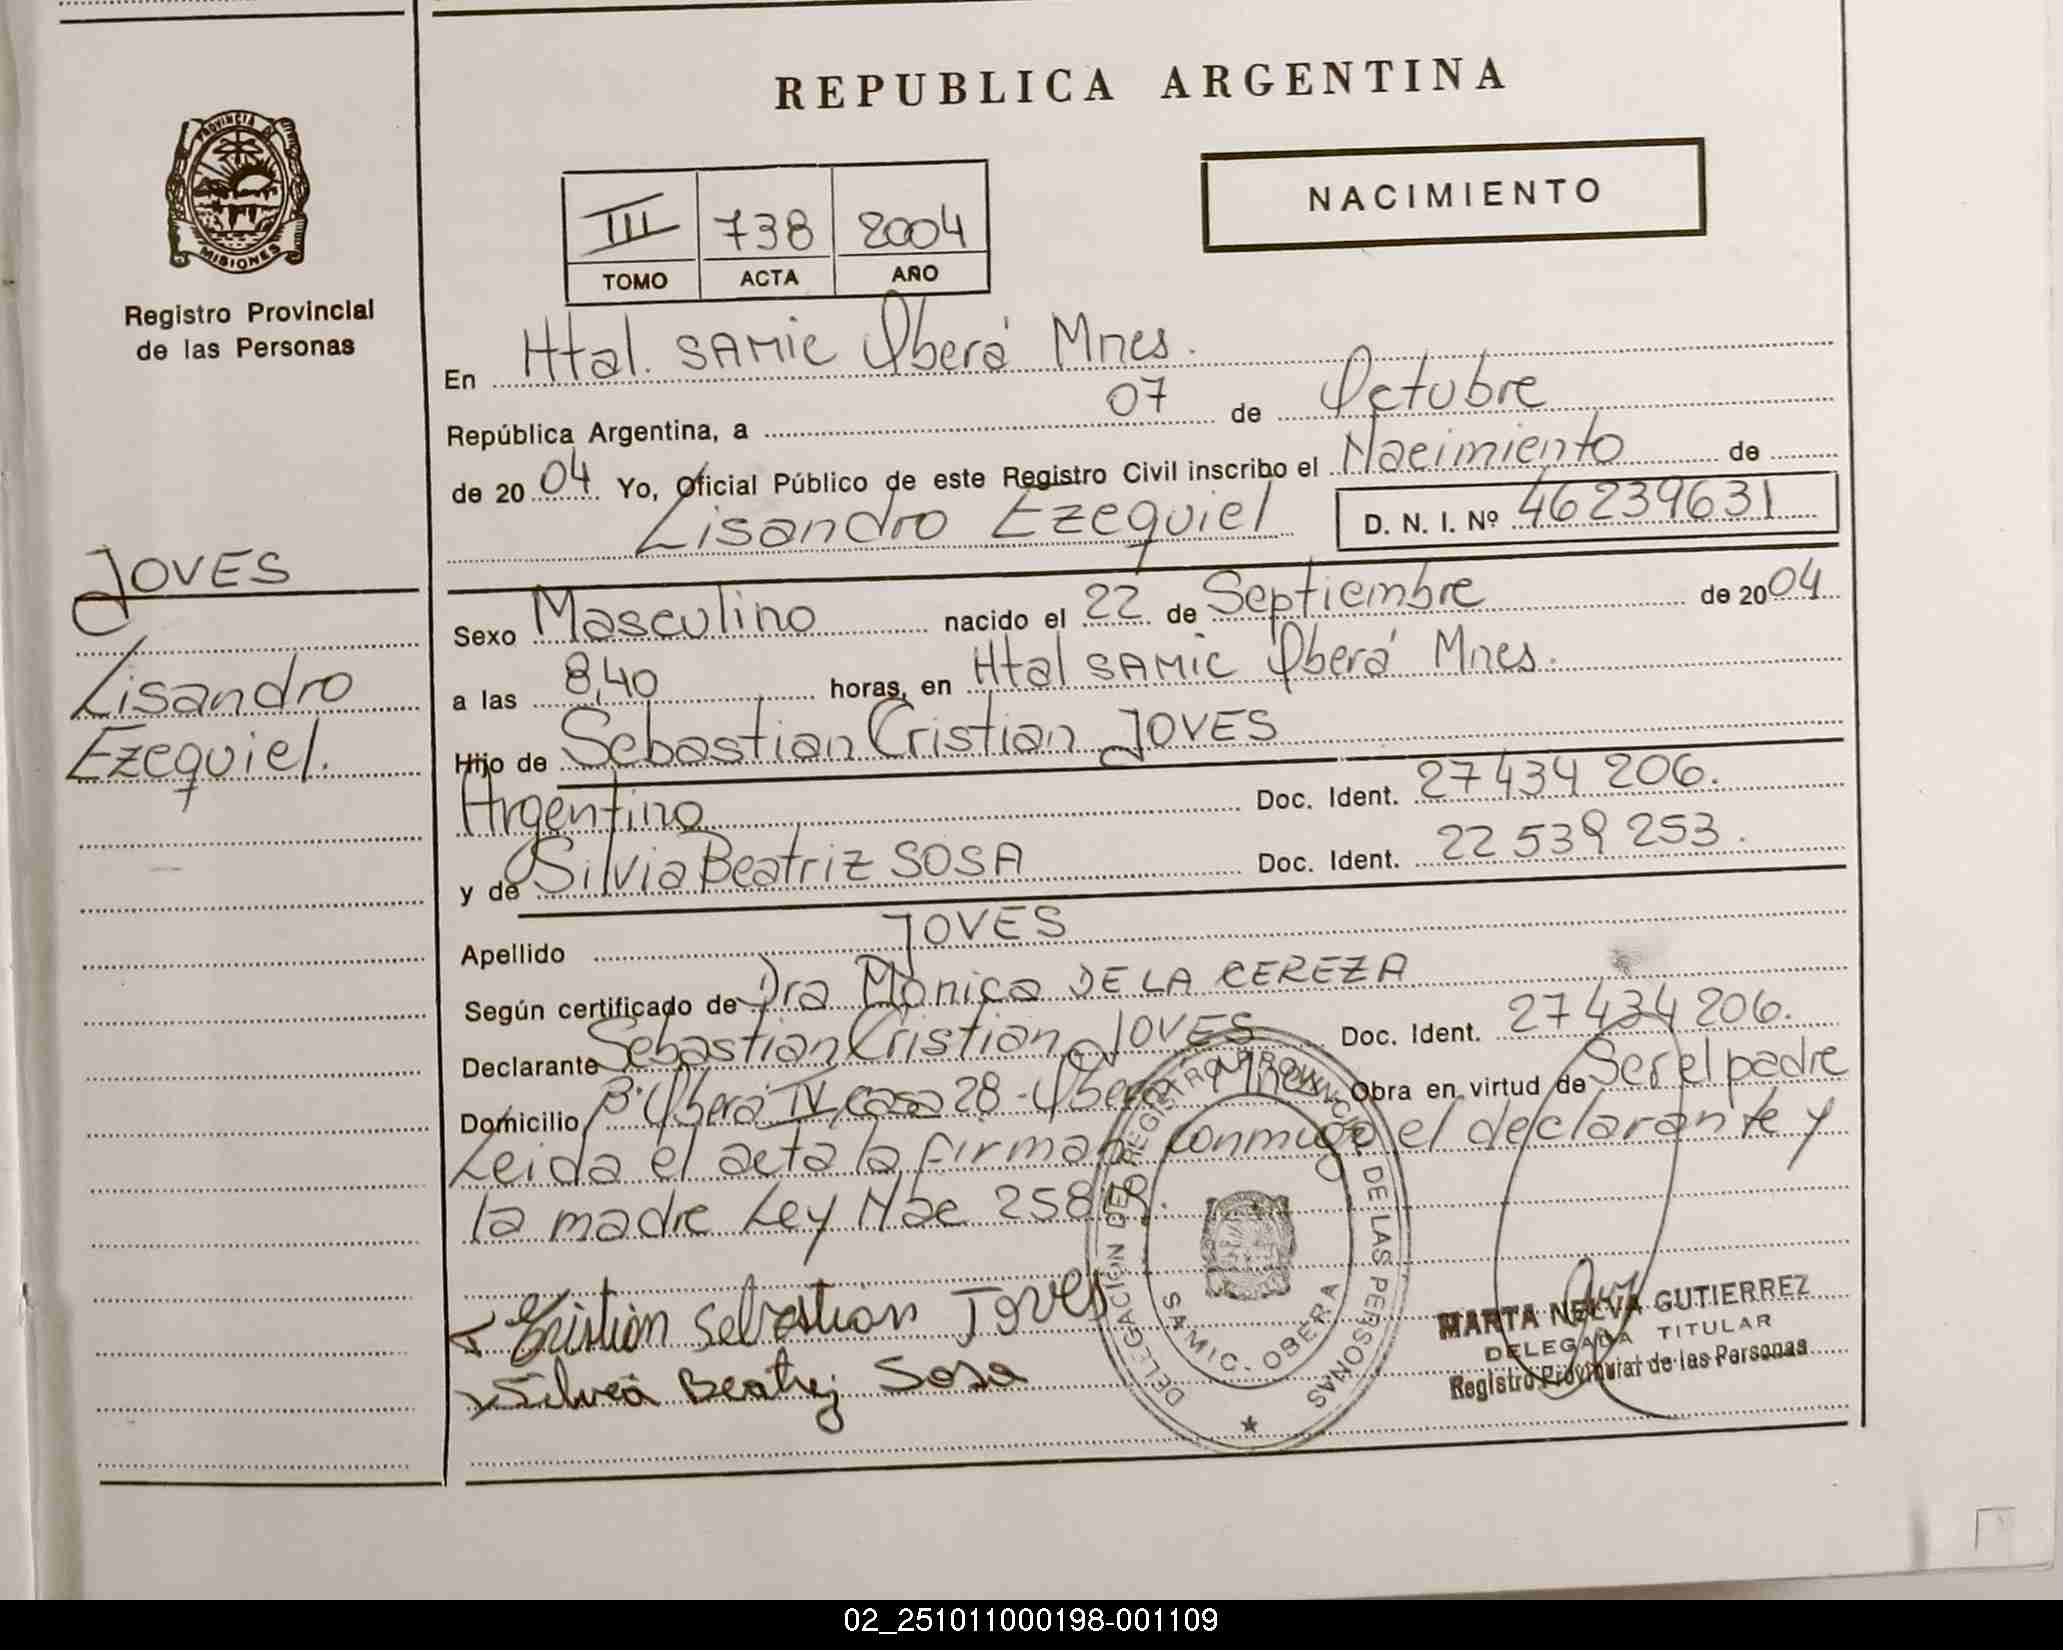 REPUBLICA ARGENTINA
PROVINCIA DE
MISIONES
Registro Provincial
de las Personas
NACIMIENTO
III 738 2004
TOMO ACTA AÑO
En Htal. SAMIC Oberá Mnes.
República Argentina, a 07 de Octubre
de 2004 Yo, Oficial Público de este Registro Civil inscribo el Nacimiento de
Lisandro Ezequiel D. N. I. Nº 46239631
JOVES
Lisandro
Ezequiel.
Sexo Masculino nacido el 22 de Septiembre de 2004
a las 8,40 horas, en Htal SAMIC Oberá Mnes.
Hijo de Sebastian Cristian JOVES
Argentino Doc. Ident. 27434 206.
y de Silvia Beatriz SOSA Doc. Ident. 22 539 253.
Apellido JOVES
Según certificado de Dra Mónica DE LA CEREZA
Declarante Sebastian Cristian JOVES Doc. Ident. 27434206.
Domicilio Bº Oberá IV, casa 28 - Oberá Mnes Obra en virtud de Ser el padre
Leida el acta la firman conmigo el declarante y
la madre Ley Nac 25819.
Cristian Sebastian Joves
Silvia Beatriz Sosa
DELEGACIÓN DEL REGISTRO PROVINCIAL DE LAS PERSONAS
SAMIC - OBERA
MARTA NELVA GUTIERREZ
DELEGADA TITULAR
Registro Provincial de las Personas
02_251011000198-001109